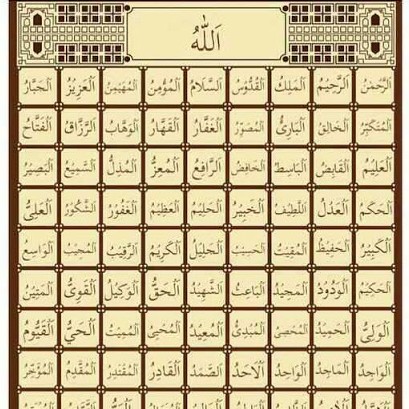 اَللّٰهُ
اَلرَّحْمٰنُ اَلرَّحِيْمُ اَلْمَلِكُ اَلْقُدُّوْسُ اَلسَّلَامُ اَلْمُؤْمِنُ اَلْمُهَيْمِنُ اَلْعَزِيْزُ اَلْجَبَّارُ
اَلْمُتَكَبِّرُ اَلْخَالِقُ اَلْبَارِئُ اَلْمُصَوِّرُ اَلْغَفَّارُ اَلْقَهَّارُ اَلْوَهَّابُ اَلرَّزَّاقُ اَلْفَتَّاحُ
اَلْعَلِيْمُ اَلْقَابِضُ اَلْبَاسِطُ اَلْخَافِضُ اَلرَّافِعُ اَلْمُعِزُّ اَلْمُذِلُّ اَلسَّمِيْعُ اَلْبَصِيْرُ
اَلْحَكَمُ اَلْعَدْلُ اَللَّطِيْفُ اَلْخَبِيْرُ اَلْحَلِيْمُ اَلْعَظِيْمُ اَلْغَفُوْرُ اَلشَّكُوْرُ اَلْعَلِىُّ
اَلْكَبِيْرُ اَلْحَفِيْظُ اَلْمُقِيْتُ اَلْحَسِيْبُ اَلْجَلِيْلُ اَلْكَرِيْمُ اَلرَّقِيْبُ اَلْمُجِيْبُ اَلْوَاسِعُ
اَلْحَكِيْمُ اَلْوَدُوْدُ اَلْمَجِيْدُ اَلْبَاعِثُ اَلشَّهِيْدُ اَلْحَقُّ اَلْوَكِيْلُ اَلْقَوِىُّ اَلْمَتِيْنُ
اَلْوَلِىُّ اَلْحَمِيْدُ اَلْمُحْصِىُ اَلْمُبْدِئُ اَلْمُعِيْدُ اَلْمُحْيِىُ اَلْمُمِيْتُ اَلْحَىُّ اَلْقَيُّوْمُ
اَلْوَاجِدُ اَلْمَاجِدُ اَلْوَاحِدُ اَلْاَحَدُ اَلصَّمَدُ اَلْقَادِرُ اَلْمُقْتَدِرُ اَلْمُقَدِّمُ اَلْمُؤَخِّرُ